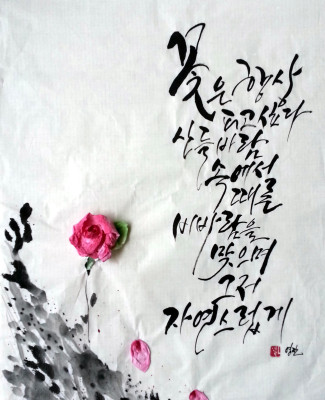 꽃은 항상
피고 싶다
산들바람
속에서
때를
비바람을
맞으며
그저
자연스럽게